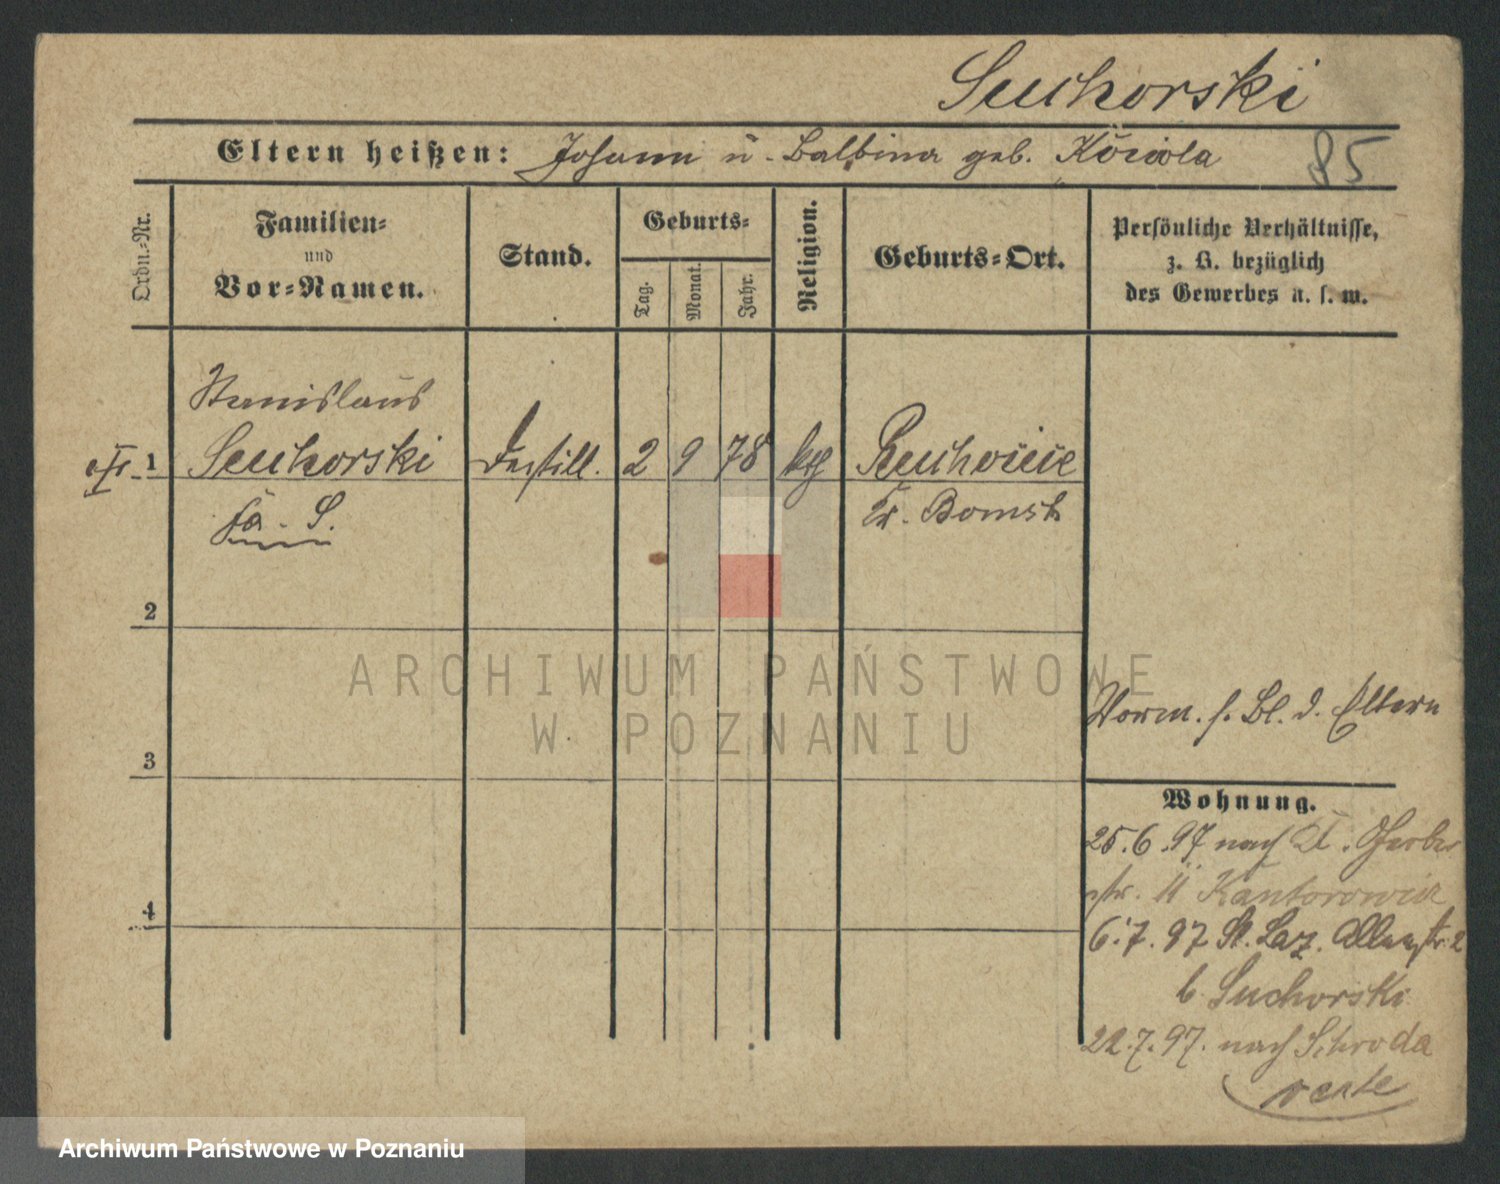 Suchorski
Eltern heißen: Johann u. Balbina geb.
85
Ordn.-Nr.
Familien-
und
Vor-Namen.
Stand.
Geburts-
Tag.
Monat.
Jahr.
Religion.
Geburts-Ort.
Persönliche Verhältnisse,
z. B. bezüglich
des Gewerbes u. s. w.
Stanislaus
1 Suchorski Destill. 2 9 78 kg
Kr. Bomst
2
ARCHIWUM PAŃSTWOWE
W POZNANIU
Vorm. s. Bl. d. Eltern
3
Wohnung.
25.6.97 nach Kl. Gerber
str. 11 Kantorowicz
4
6.7.97 St. Laz. 2
b Suchorski
22.7.97. nach Schroda
Archiwum Państwowe w Poznaniu